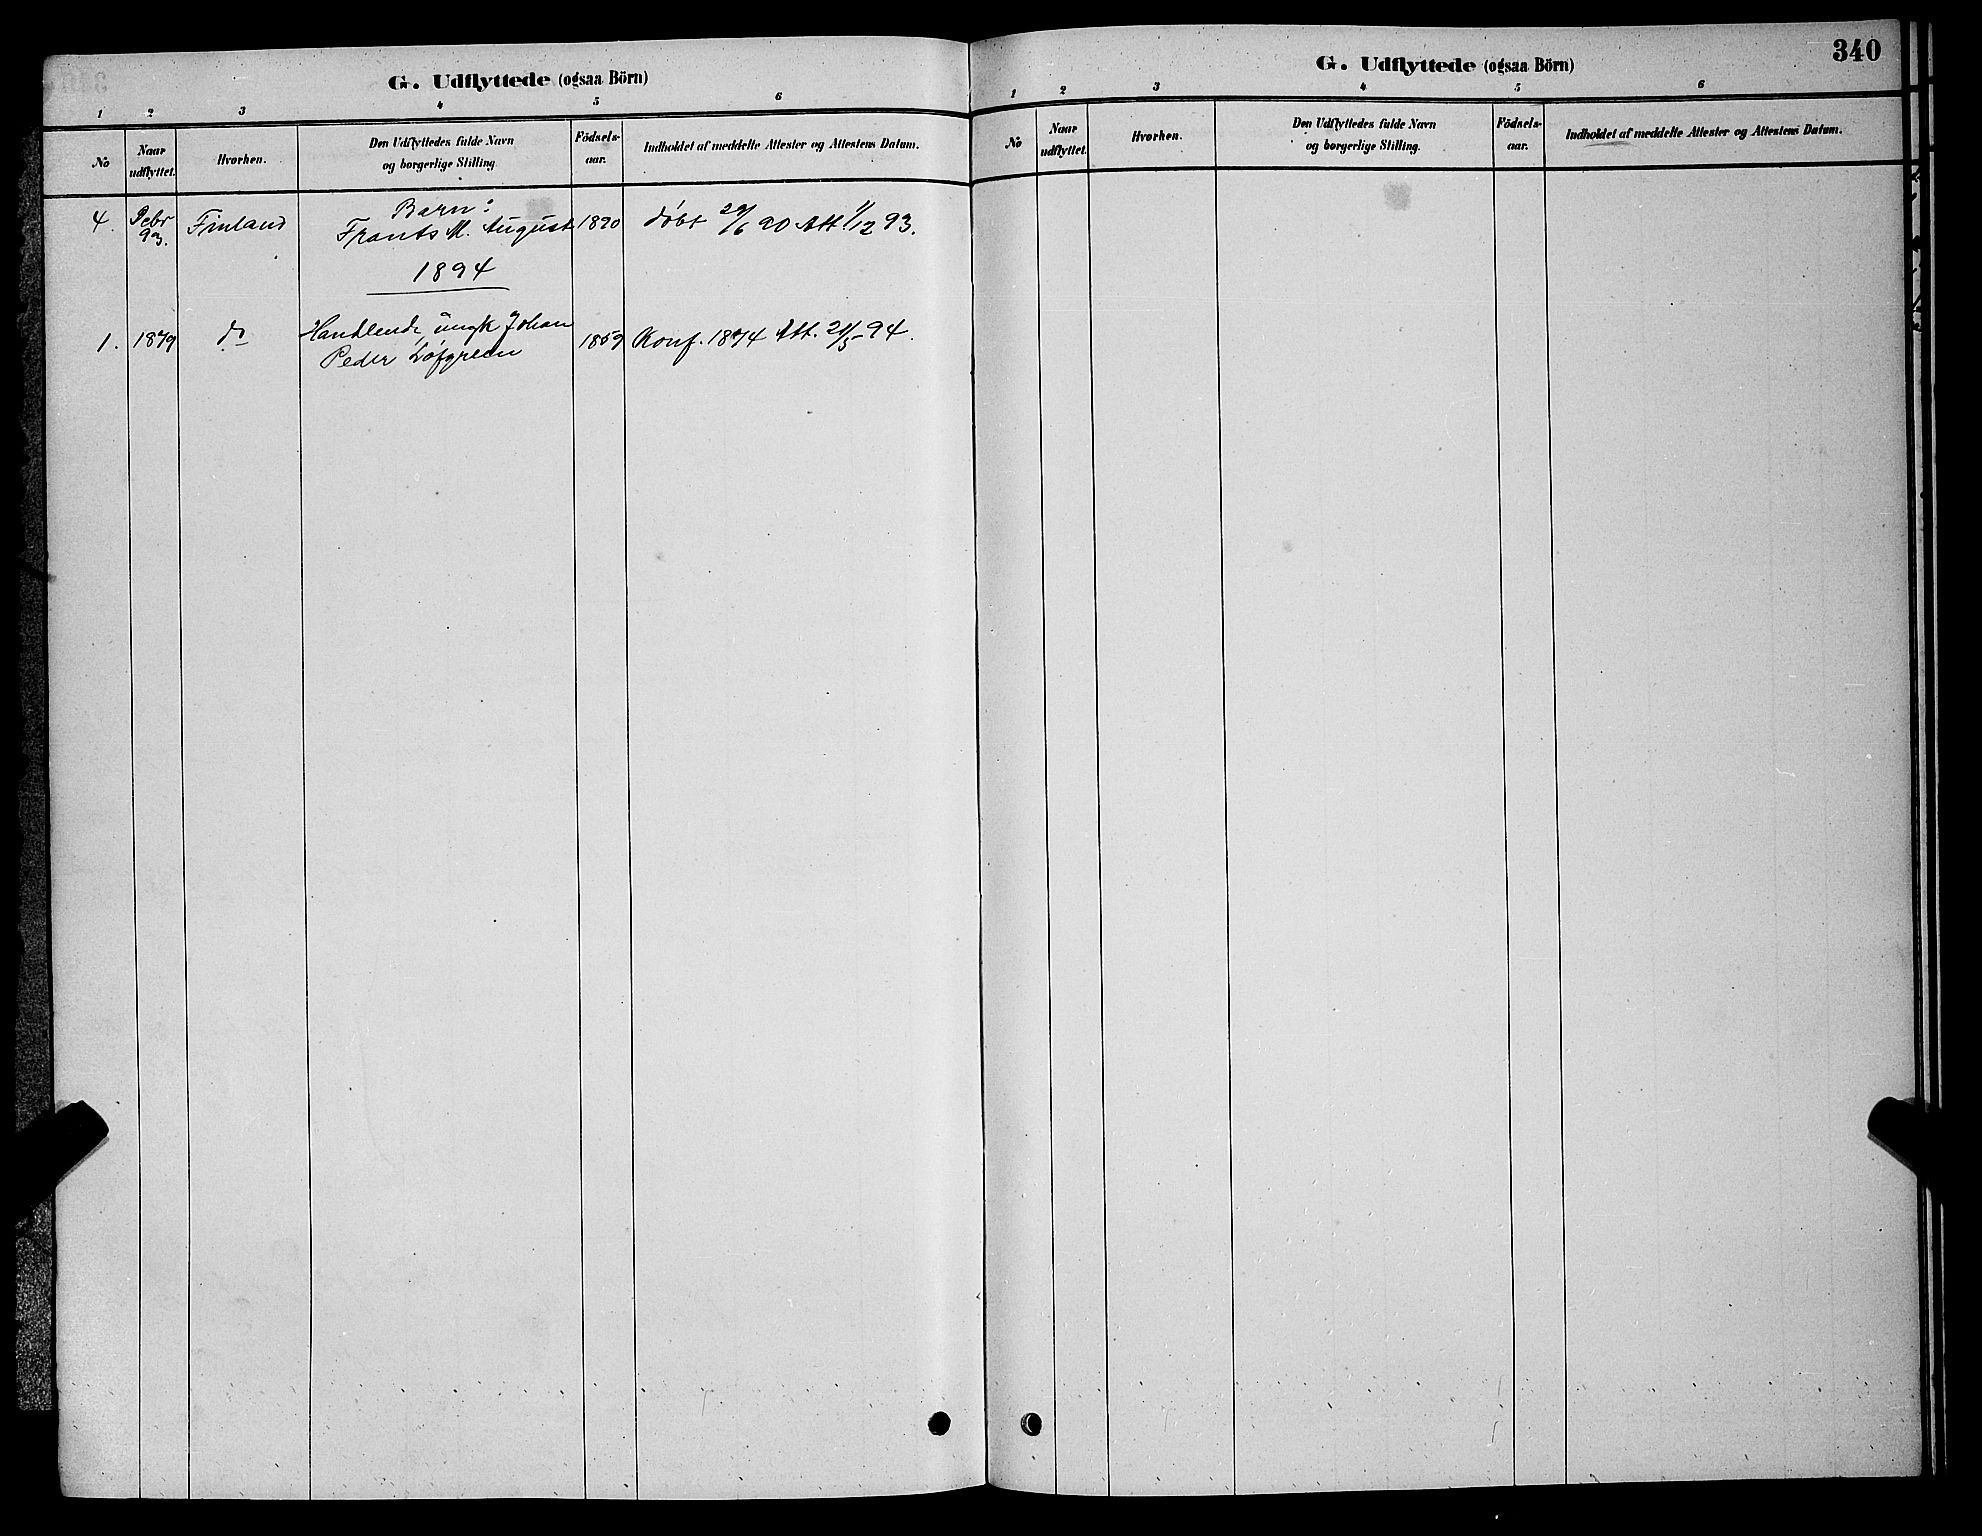 G. Udflyttede (ogsaa Börn)
1 2 3 4 5 6
No
Naar udflyttet.
Hvorhen.
Den Udflyttedes fulde Navn
og borgerlige Stilling
Födsels-
aar.
Indholdet af meddelte Attester og Attestens Datum.
Barn:
4. Febr 93. Finland Frants M. August 1890 døbt 29/6 90 Att. 1/12 93.
1894
1. 1879 do Handlende, ungk Johan
Peder Løfgreen 1859 Konf. 1874 Att. 21/5 94.
340
G. Udflyttede (ogsaa Börn)
1 2 3 4 5 6
No
Naar
udflyttet.
Hvorhen.
Den Udflyttedes fulde Navn
og borgerlige Stilling.
Födsels-
aar.
Indholdet af meddelte Attester og Attestens Datum.